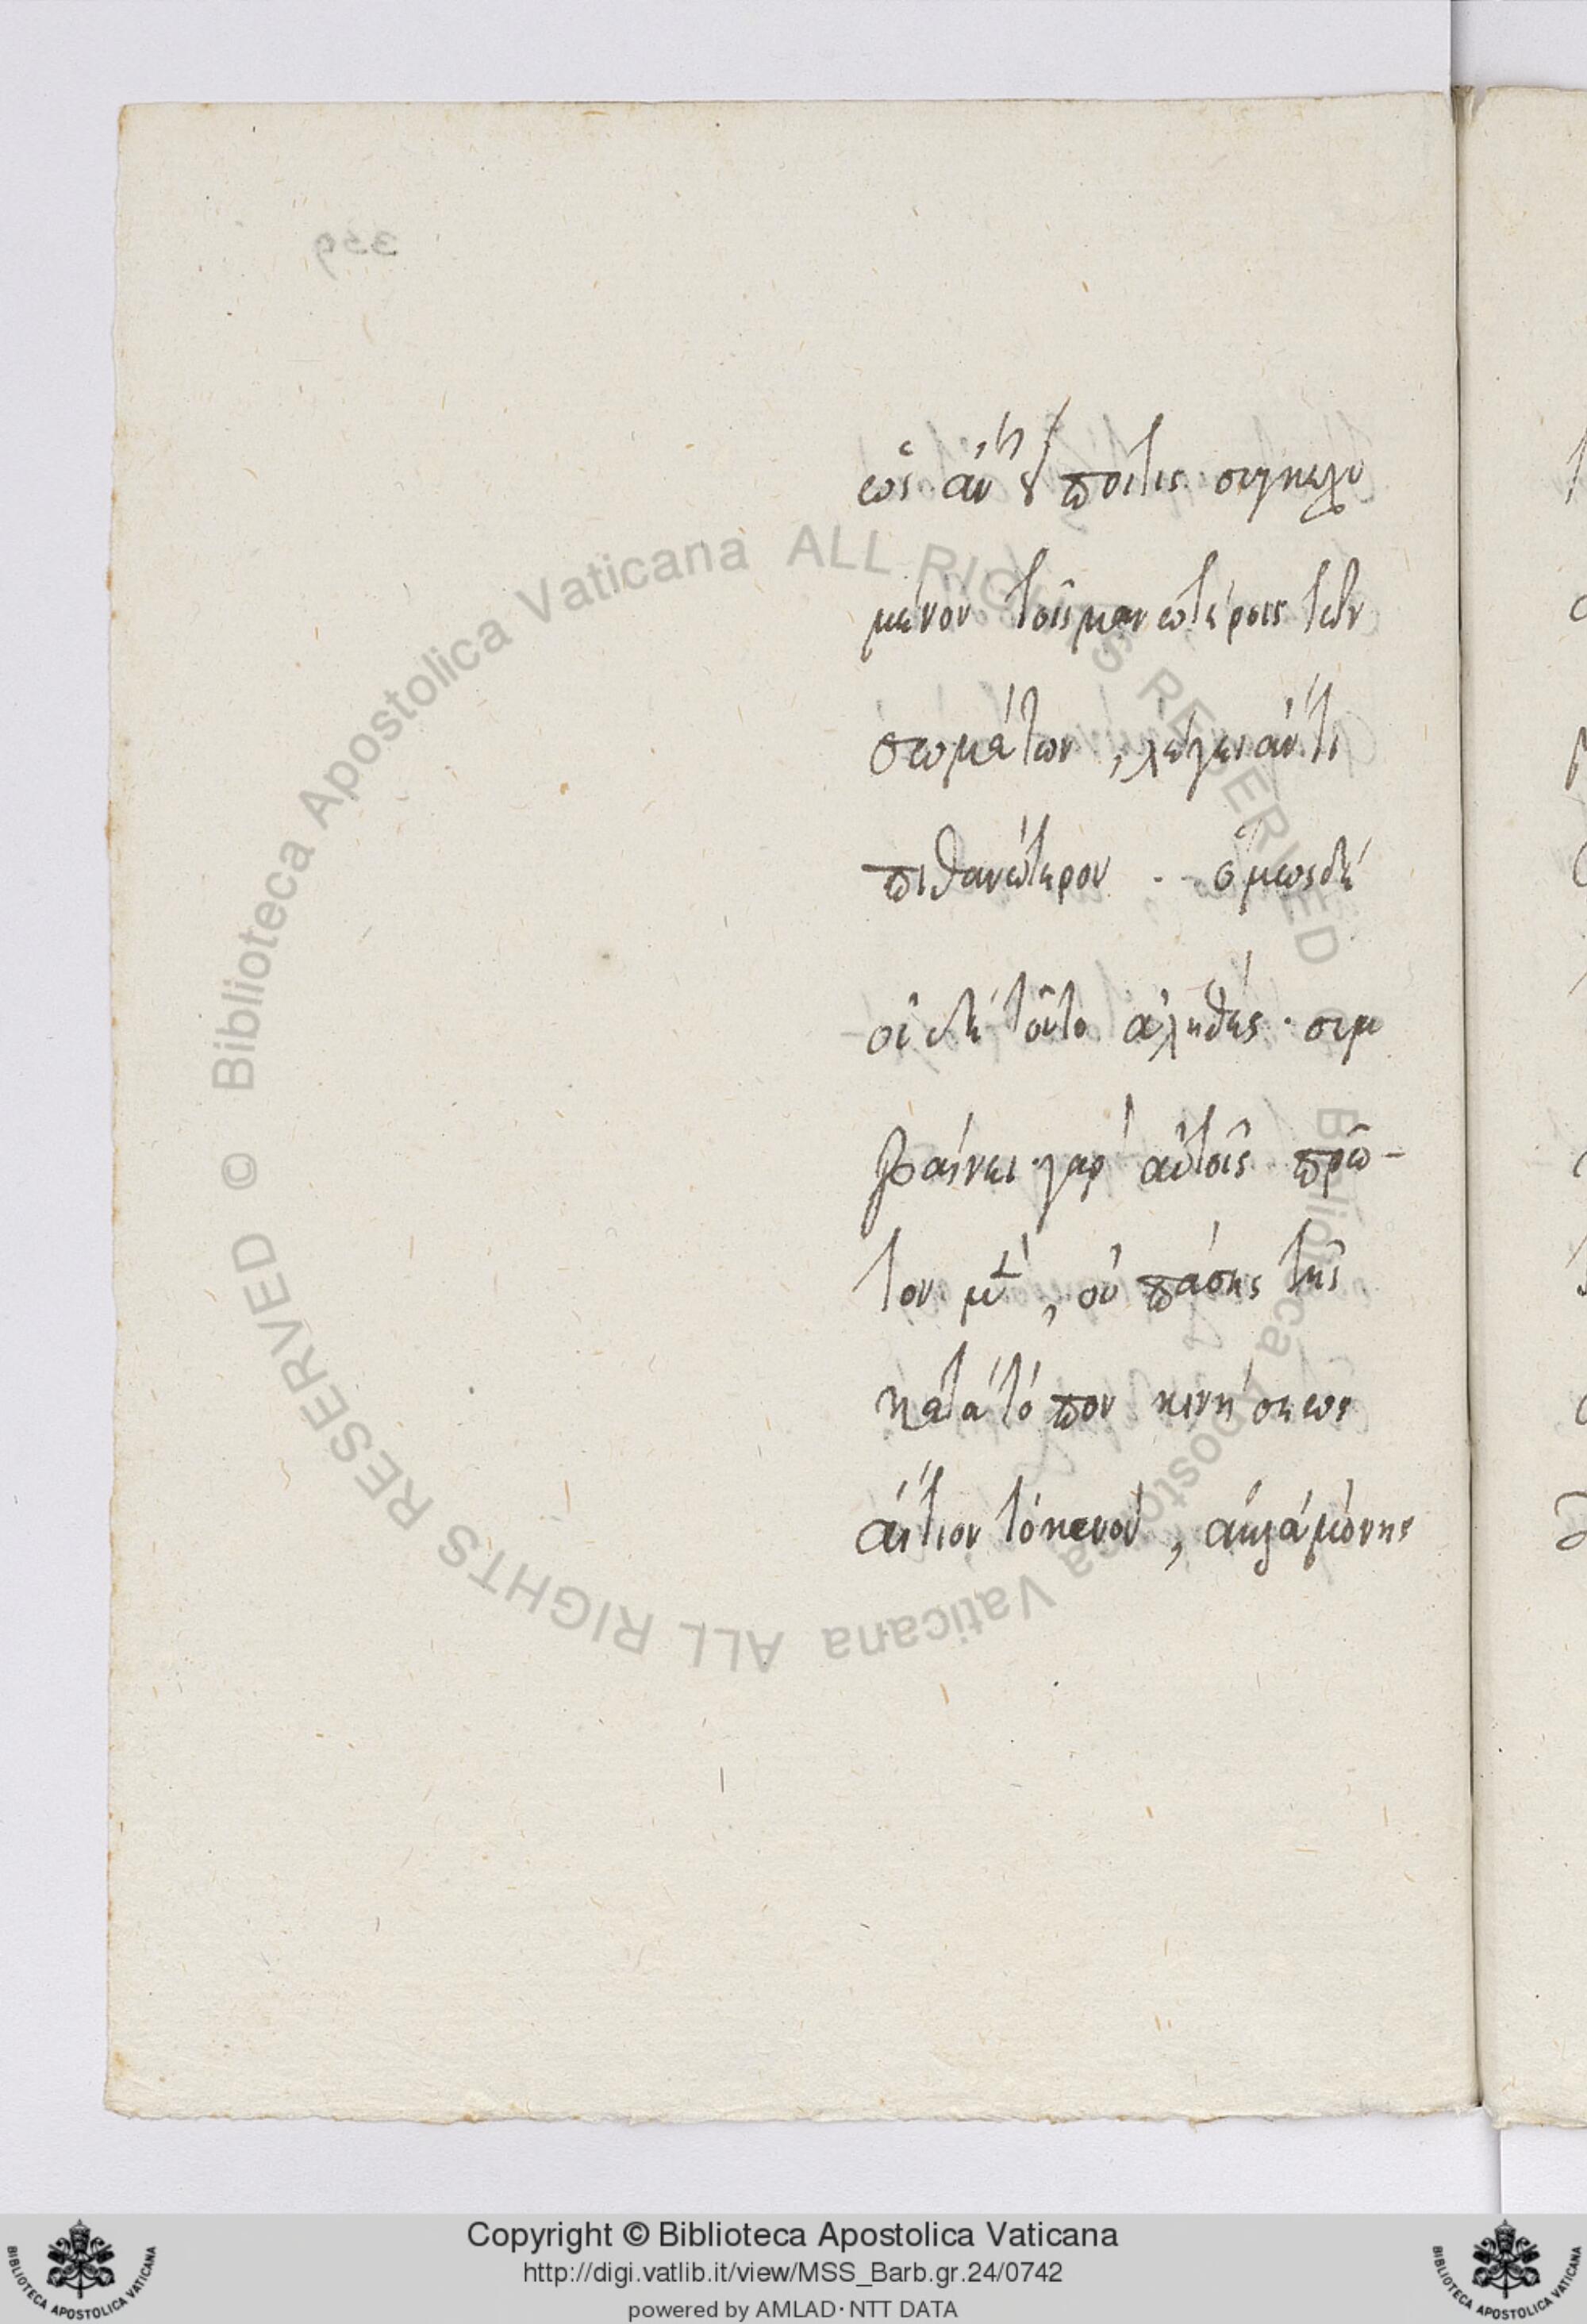 339
ὡς ἂν
μένον τοῖς μανωτέροις τῶν
σωμάτων, λέγει ἄν τι
πιθανώτερον. ὅμως δὲ
οὐδὲ τοῦτο ἀληθές. συμ
βαίνει γὰρ αὐτοῖς πρῶ-
τον μὲν, οὐ πάσης τῆς
κατὰ τόπον κινήσεως
αἴτιον τὸ κενὸν, ἀλλὰ μόνης
© Biblioteca Apostolica Vaticana ALL RIGHTS RESERVED © Biblioteca Apostolica Vaticana ALL RIGHTS RESERVED
Copyright © Biblioteca Apostolica Vaticana
http://digi.vatlib.it/view/MSS_Barb.gr.24/0742
powered by AMLAD · NTT DATA
BIBLIOTECA APOSTOLICA VATICANA
BIBLIOTECA APOSTOLICA VATICANA